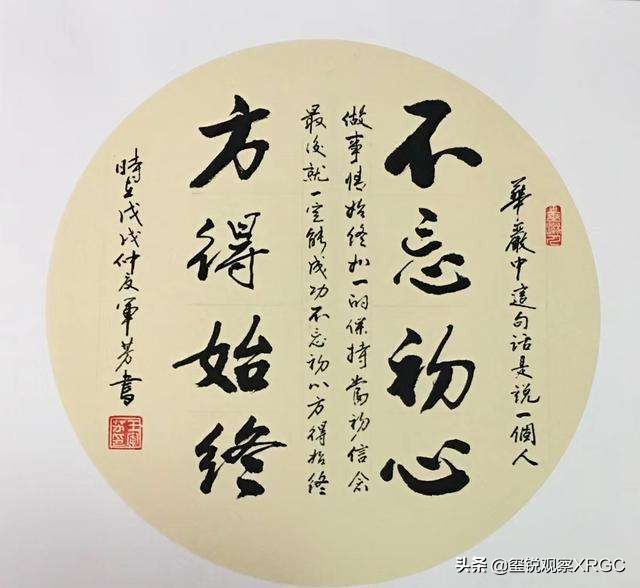 華嚴中這句話是說一個人
不忘初心
做事情始终如一的保持當初信念
最後就一定能成功不忘初心方得始终
方得始终
時在戊戌仲夏軍芳書
头条 @玺锐观察XRGC